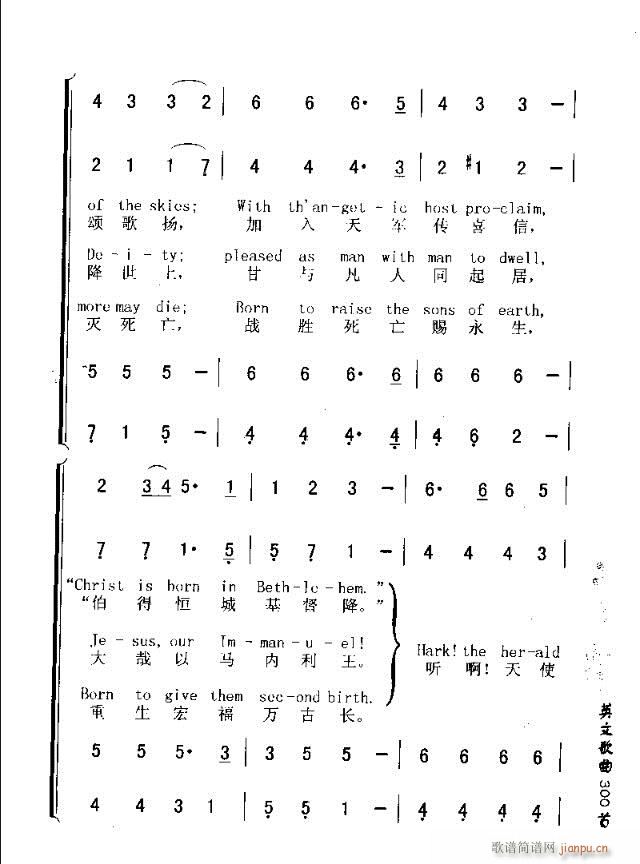 4 3 3 2 | 6 6 6· 5 | 4 3 3 – |
2 1 1 7 | 4 4 4· 3 | 2 #1 2 – |
of the skies; With th'an-gel-ic host pro-claim,
颂 歌 扬, 加 入 天 军 传 喜 信,
De-i-ty; pleased as man with man to dwell,
降 世 上, 甘 与 凡 人 同 起 居,
more may die; Born to raise the sons of earth,
灭 死 亡, 战 胜 死 亡 赐 永 生,
5 5 5 – | 6 6 6· 6 | 6 6 6 – |
7 1 5 – | 4 4 4· 4 | 4 6 2 – |
2 3 4 5· 1 | 1 2 3 – | 6· 6 6 5 |
7 7 1· 5 | 5 7 1 – | 4 4 4 3 |
"Christ is born in Beth-le-hem."
"伯 得 恒 城 基 督 降。"
Je-sus, our Im-man-u-el!
大 哉 以 马 内 利 王。
Hark! the her-ald
听 啊! 天 使
Born to give them sec-ond birth.
重 生 宏 福 万 古 长。
5 5 5· 3 | 3 5 5 – | 6 6 6 6 |
4 4 3 1 | 5 5 1 – | 4 4 4 4 |
英文歌曲300首
歌谱简谱网 jianpu.cn